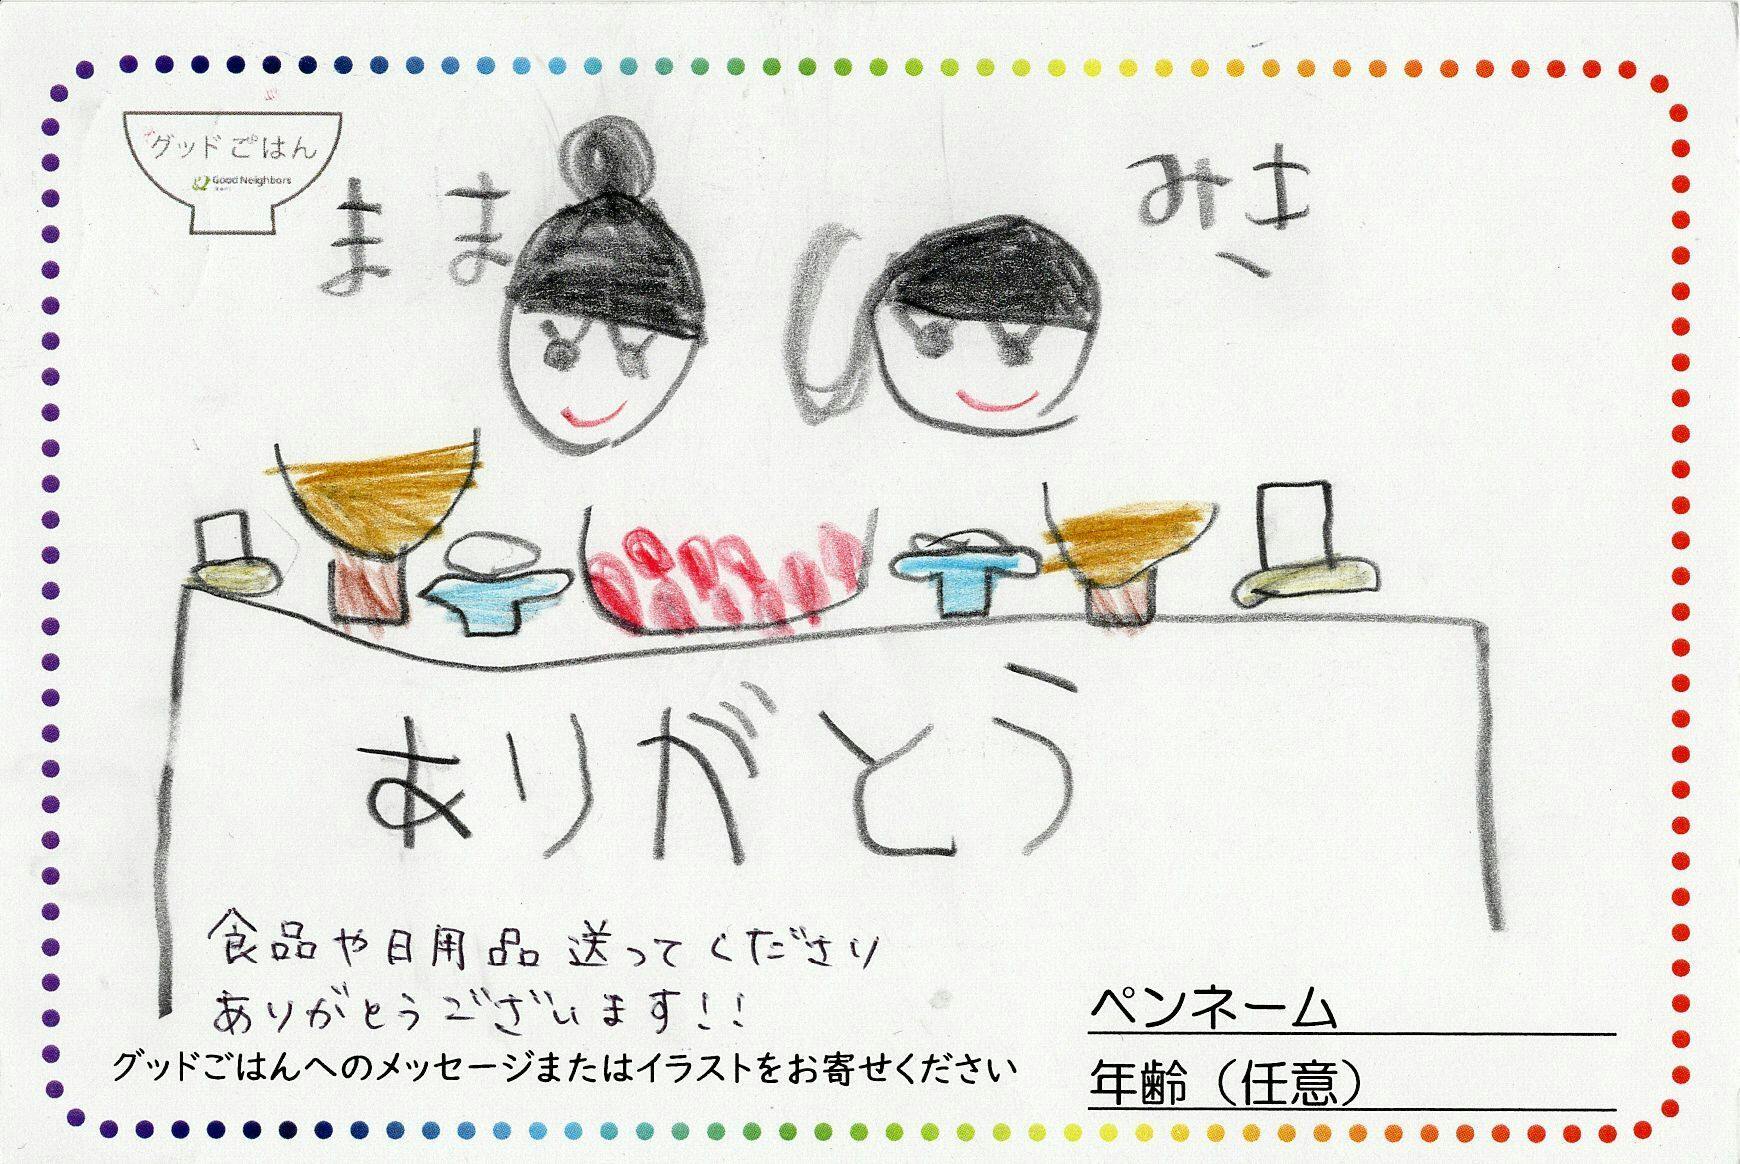 グッドごはん
Good Neighbors
まま
みさ
ありがとう
食品や日用品送ってくださり
ありがとうございます!!
グッドごはんへのメッセージまたはイラストをお寄せください
ペンネーム
年齢（任意）